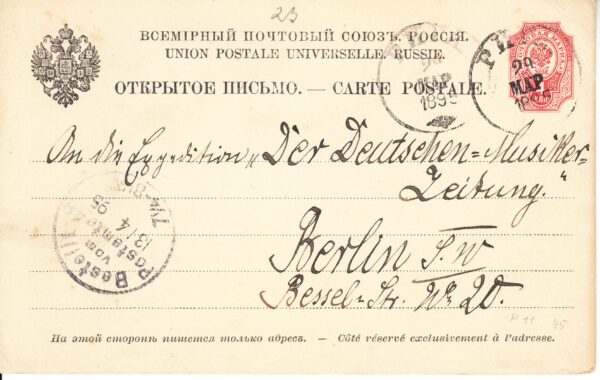 23
ВСЕМІРНЫЙ ПОЧТОВЫЙ СОЮЗЪ. РОССІЯ.
UNION POSTALE UNIVERSELLE. RUSSIE.
ОТКРЫТОЕ ПИСЬМО. — CARTE POSTALE.
МАР.
1895
29
МАР.
1895
An die Expedition „Der Deutschen-Musiker-
Zeitung."
Berlin S. W
Bessel-Str. No 20.
Bestellt
vom
Postamte
13/4 95
На этой сторонѣ пишется только адресъ. — Côté réservé exclusivement à l'adresse.
P 11